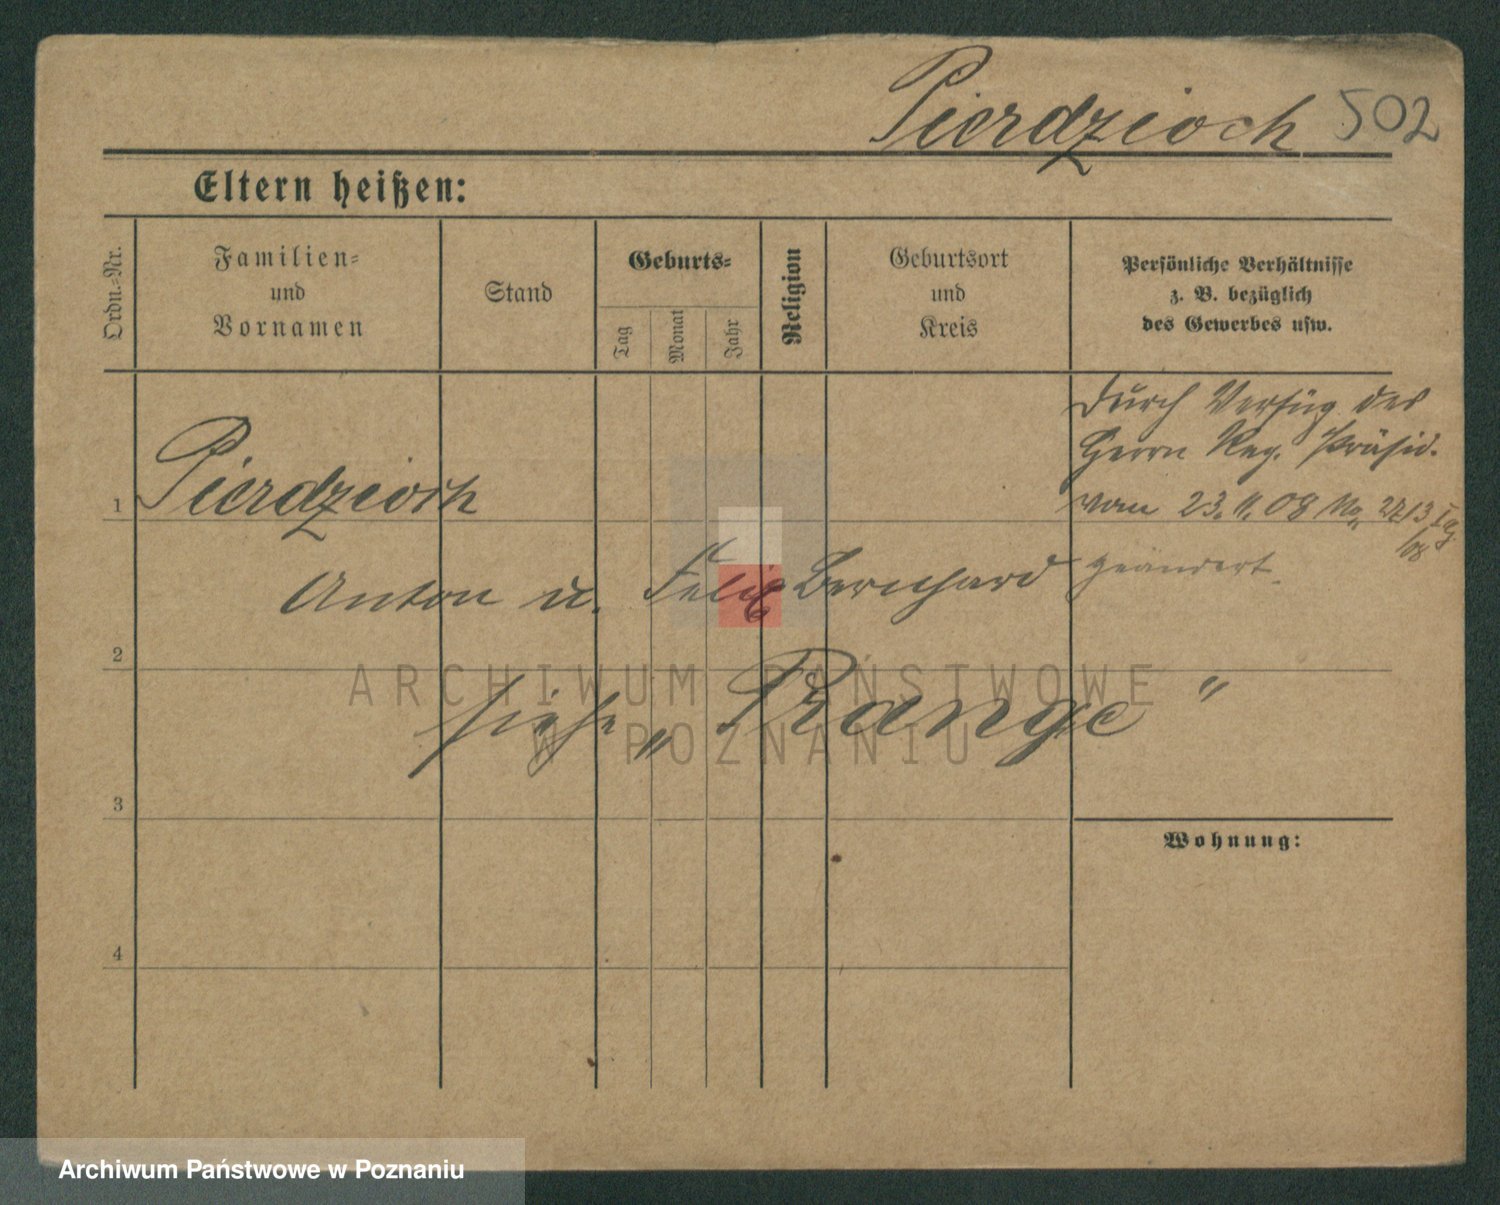 Pierdzioch 502
Eltern heißen:
Ordn.-Nr.
Familien-
und
Vornamen
Stand
Geburts-
Tag
Monat
Jahr
Religion
Geburtsort
und
Kreis
Persönliche Verhältnisse
z. B. bezüglich
des Gewerbes usw.
1 Pierdzioch
Durch Verfüg des
Herrn Reg. Präsid.
vom 23. 11. 08
geändert.
Anton u. Felix Bernhard
2
siehe „Range"
3
Wohnung:
4
ARCHIWUM PAŃSTWOWE
W POZNANIU
Archiwum Państwowe w Poznaniu